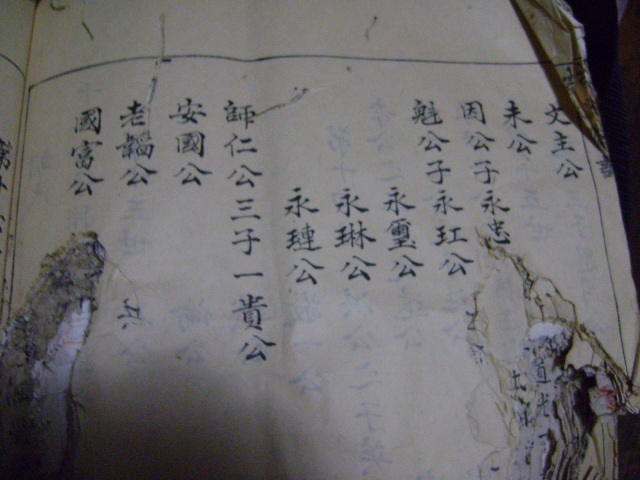 文主公
未公
因公子永忠
魁公子永玒公
永璽公
永琳公
永璉公
師仁公三子一貴公
安國公
老韜公
國富公